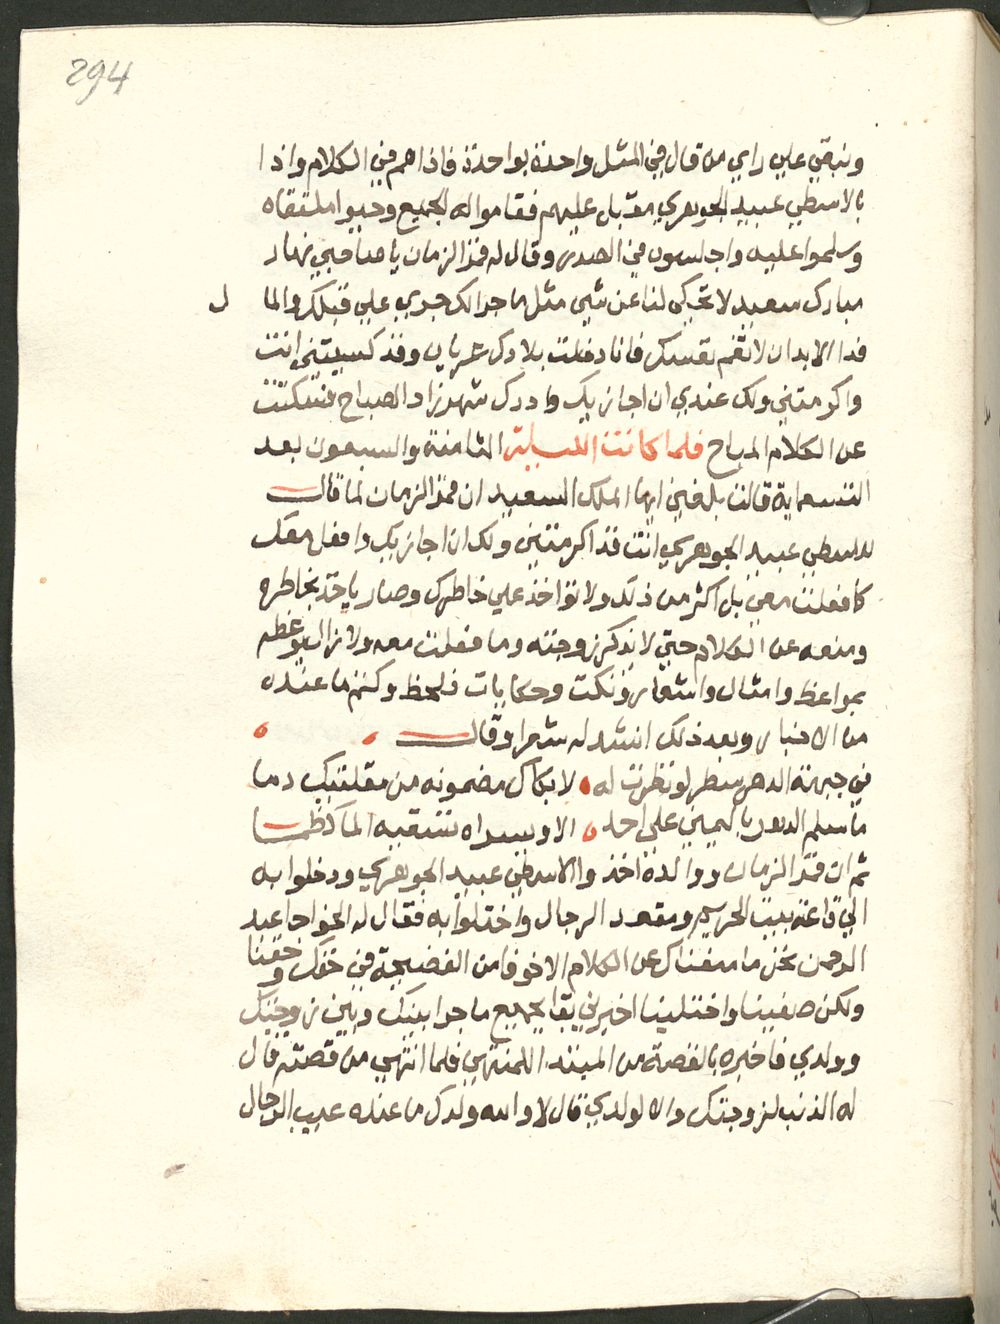 294
ونبقي علي راي من قال في المثل واحدة بواحدة فاذا هم في الكلام واذا
بالاسطي عبيد الجوهري مقبل عليهم فقاموا له الجميع وحيوا ملتقاه
وسلموا عليه واجلسوه في الصدر وقال له قمر الزمان يا صاحبي نهار
مبارك سعيد لا تحكي لنا عن شي مثل ما جرا لك جري علي قبلك والما
ل
فدا الابدان لا تغم نفسك فانا دخلت بلادك عريان وقد كسيتني انت
واكرمتني ولك عندي ان اجازيك وادرك شهرزاد الصباح فسكتت
عن الكلام المباح فلما كانت الليلة الثامنة والسبعون بعد
التسعماية قالت بلغني ايها الملك السعيد ان قمر الزمان لما قال
للاسطي عبيد الجوهري انت قد اكرمتني ولك ان اجازيك وافعل معك
كما فعلت معي بل اكثر من ذلك ولا تواخذ علي خاطرك وصار ياخد بخاطره
ومنعه عن الكلام حتي لا يذكر زوجته وما فعلت معه ولا زال يوعظه
بمواعظ وامثال واشعار ونكت وحكايات فلحظ وكتم ما عنده
من الاخبار وبعد ذلك انشد له شعرا وقال
في جبهة الدهر سطر لو نظرت له لابكاك مضمونه من مقلتيك دما
ما سلم الدهر باليمين علي احد الا ويسراه تسقيه الماكظما
ثم ان قمر الزمان ووالده اخذوا الاسطي عبيد الجوهري ودخلوا به
الي قاعة بيت الحريم ومقعد الرجال واختلوا به فقال له الخواجا عبد
الرحمن نحن ما منعناك عن الكلام الا خوفا من الفضيحة في حقك وحقنا
ولكن صفينا واختلينا اخبرني بقا بجميع ما جرا بينك وبين زوجتك
وولدي فاخبره بالقصة من المبتدا للمنتهي فلما انتهي من قصته قال
له الذنب لزوجتك والا لولدي قال لا والله ولدك ما عنده عيب الرجال